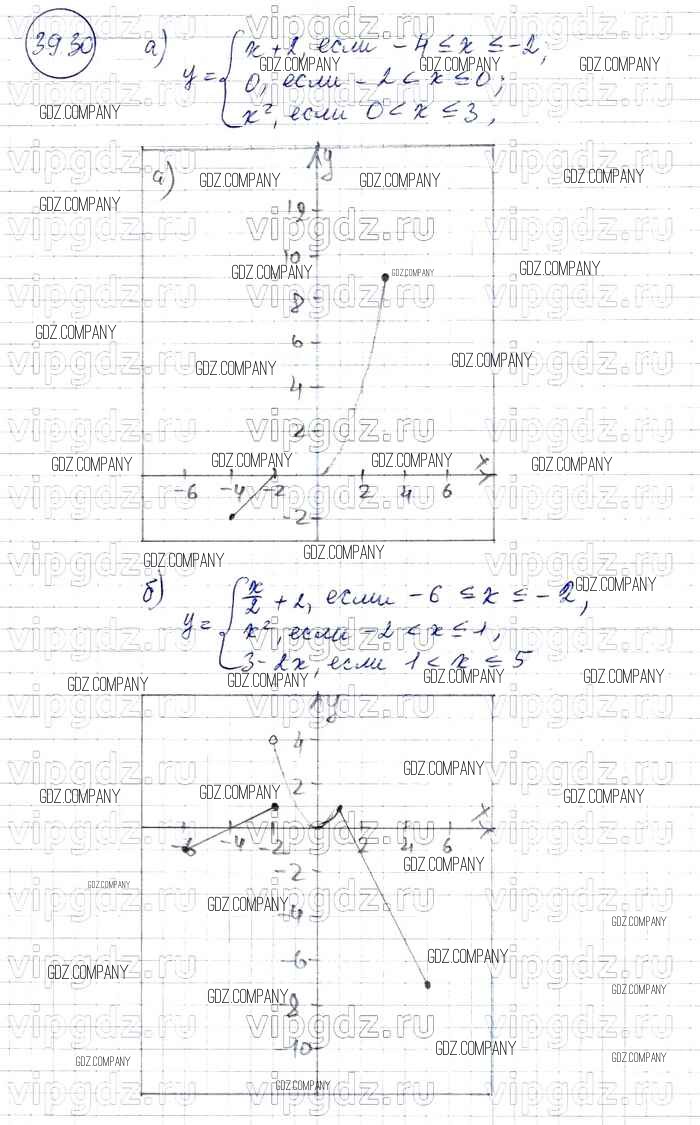 3930 а) y = { x + 2, если - 4 ≤ x ≤ -2;
0, если - 2 < x ≤ 0;
x², если 0 < x ≤ 3,
а)
y
12
10
8
6
4
2
x
-6 -4 -2 2 4 6
-2
б) y = { x/2 + 2, если - 6 ≤ x ≤ - 2,
x², если -2 < x ≤ 1,
3-2x, если 1 < x ≤ 5
y
4
2
x
-6 -4 -2 2 4 6
-2
-4
-6
-8
-10
GDZ.COMPANY
vipgdz.ru